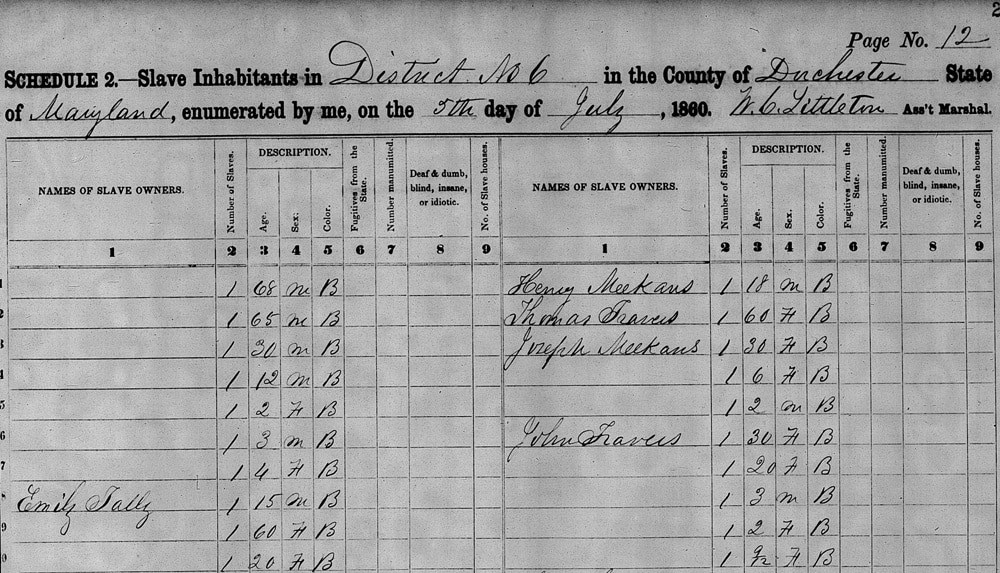 2
Page No. 12
SCHEDULE 2.—Slave Inhabitants in District No 6 in the County of Dorchester State
of Maryland, enumerated by me, on the 5th day of July, 1860. W. C. Littleton Ass't Marshal.
NAMES OF SLAVE OWNERS. Number of Slaves. DESCRIPTION. Age. Sex. Color. Fugitives from the State. Number manumitted. Deaf & dumb, blind, insane, or idiotic. No. of Slave houses. NAMES OF SLAVE OWNERS. Number of Slaves. DESCRIPTION. Age. Sex. Color. Fugitives from the State. Number manumitted. Deaf & dumb, blind, insane, or idiotic. No. of Slave houses.
1 2 3 4 5 6 7 8 9 1 2 3 4 5 6 7 8 9
1 1 68 m B Henry Meekans 1 18 m B
2 1 65 m B Thomas Travers 1 60 F B
3 1 30 m B Joseph Meekans 1 30 F B
4 1 12 m B 1 6 F B
5 1 2 F B 1 2 m B
6 1 3 m B John Travers 1 30 F B
7 1 4 F B 1 20 F B
8 Emily Tally 1 15 m B 1 3 m B
9 1 60 F B 1 2 F B
0 1 20 F B 1 F B